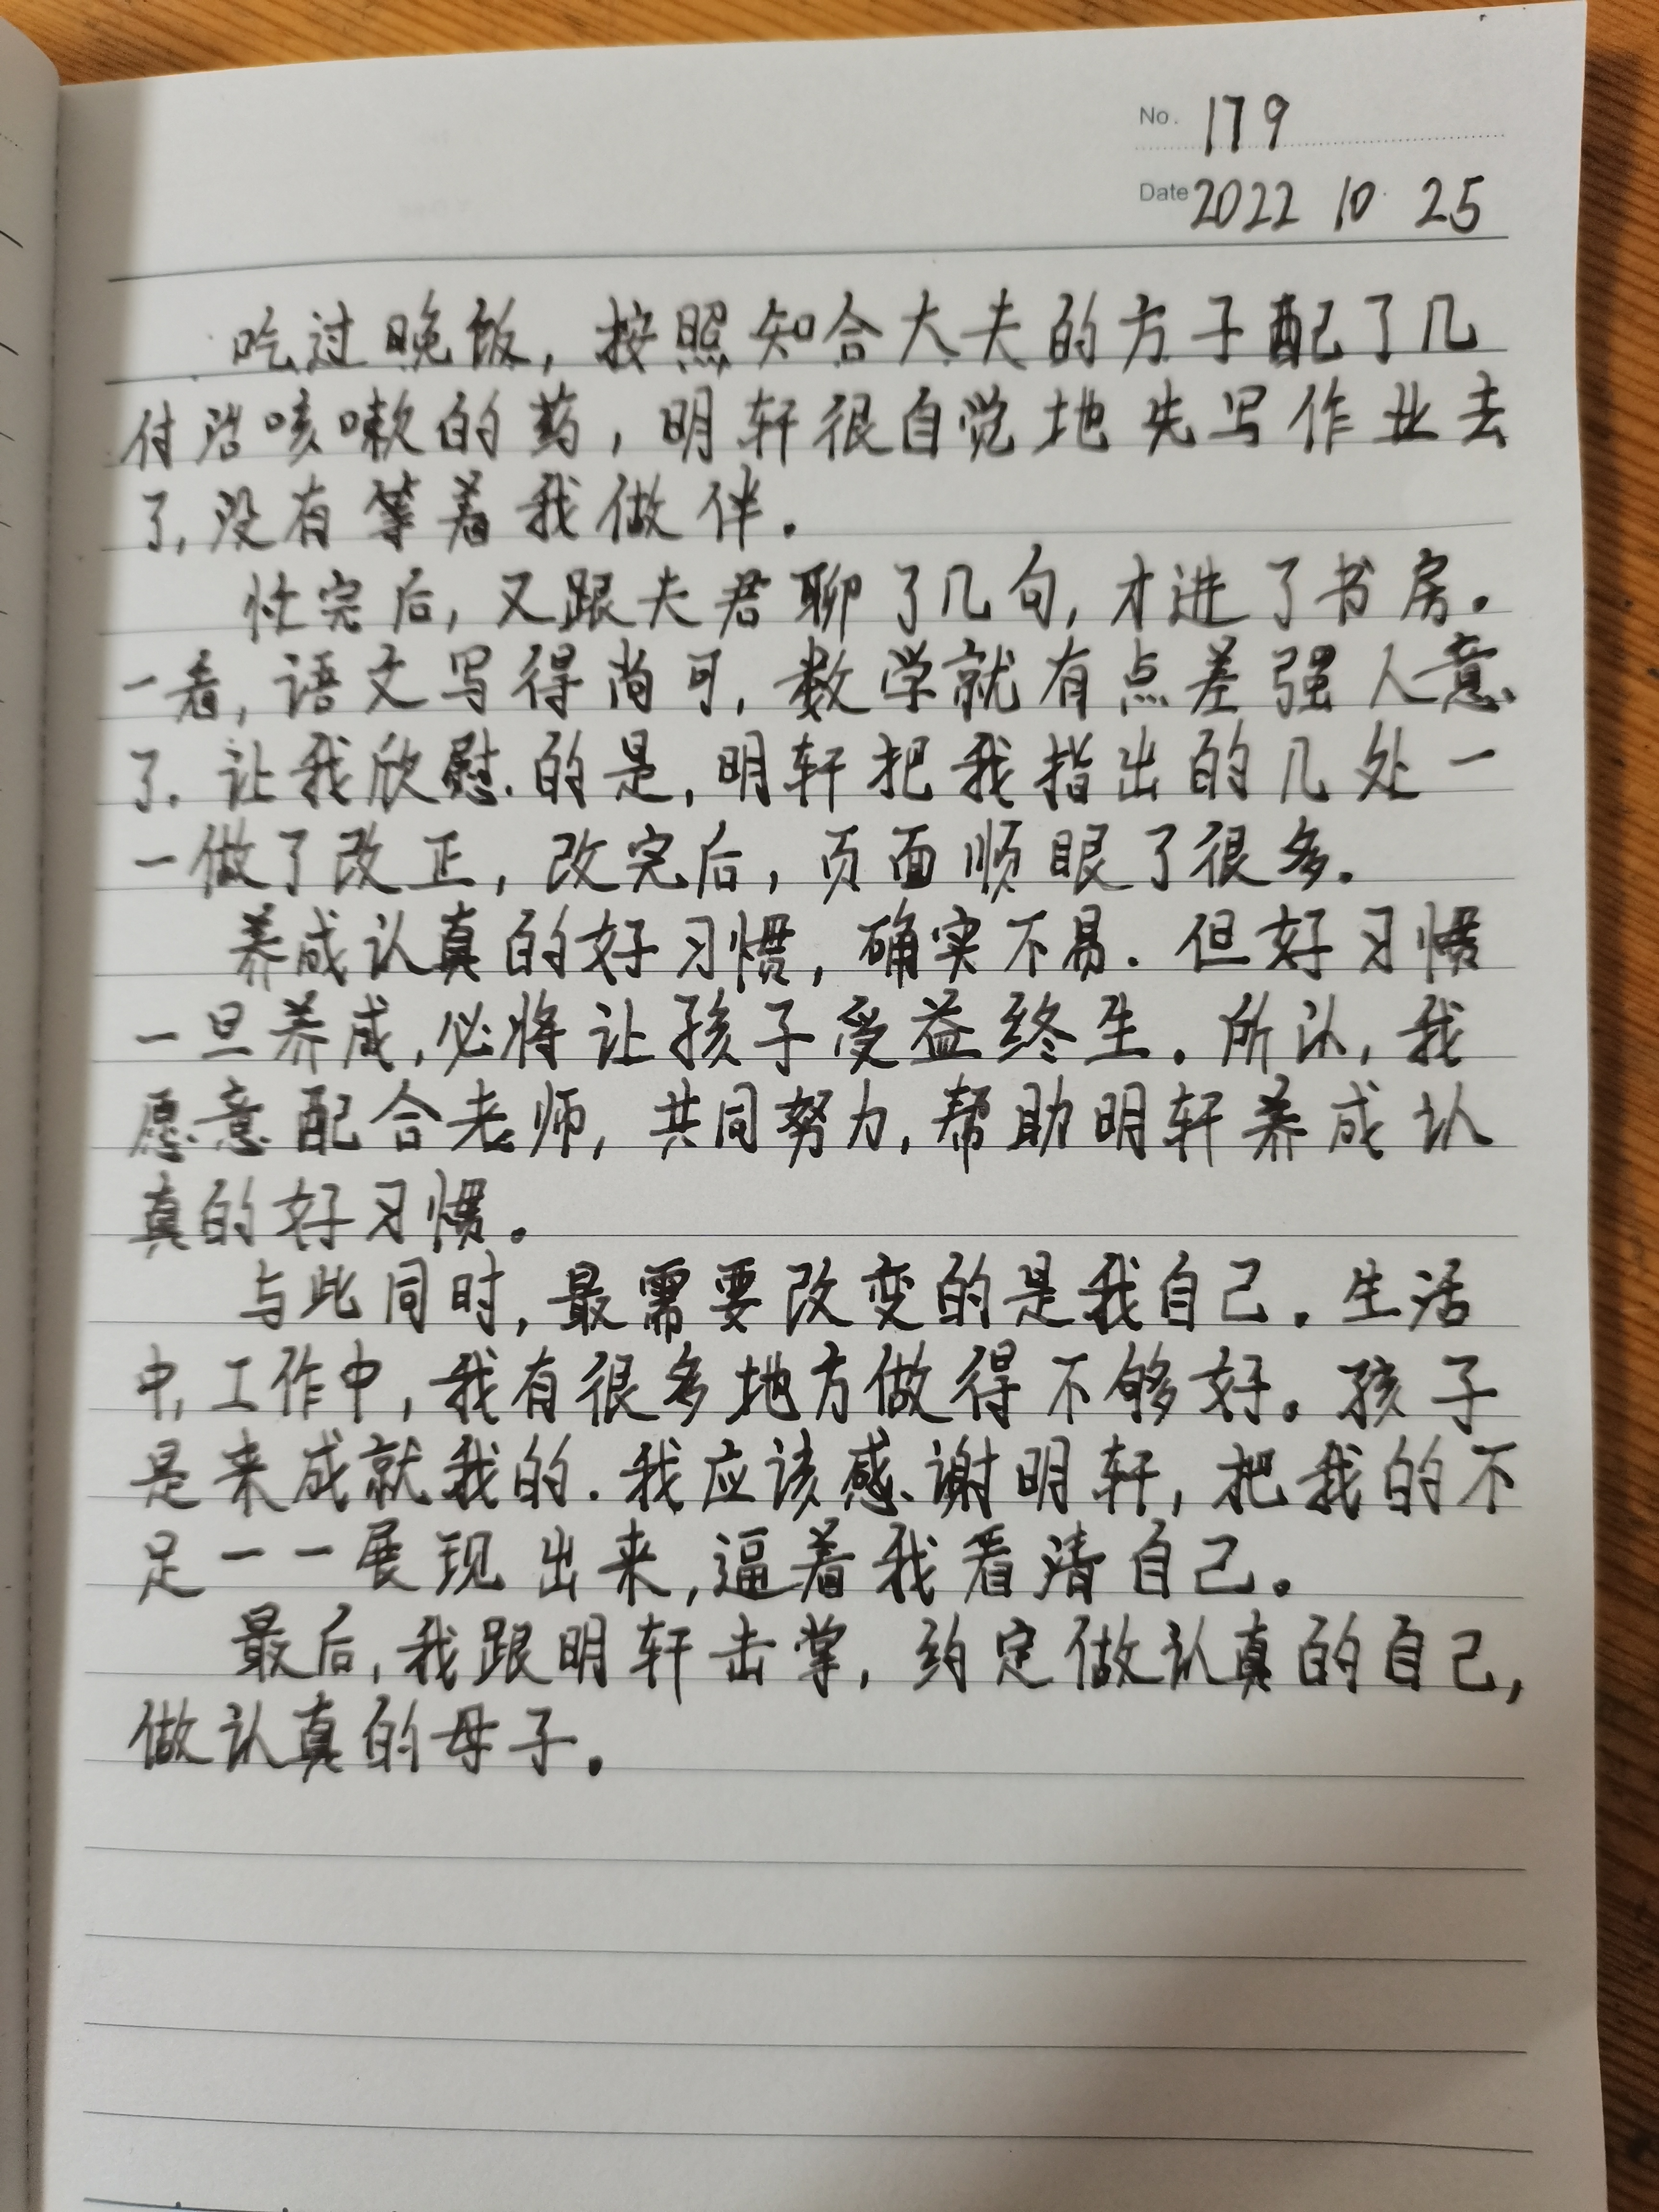 No. 179
Date 2022 10 25
吃过晚饭，按照知合大夫的方子配了几
付治咳嗽的药，明轩很自觉地先写作业去
了，没有等着我做伴.
忙完后，又跟夫君聊了几句，才进了书房.
一看，语文写得尚可，数学就有点差强人意
了.让我欣慰的是，明轩把我指出的几处一
一做了改正，改完后，页面顺眼了很多.
养成认真的好习惯，确实不易.但好习惯
一旦养成，必将让孩子受益终生.所以，我
愿意配合老师，共同努力，帮助明轩养成认
真的好习惯。
与此同时，最需要改变的是我自己.生活
中，工作中，我有很多地方做得不够好。孩子
是来成就我的.我应该感谢明轩，把我的不
足一一展现出来，逼着我看清自己。
最后，我跟明轩击掌，约定做认真的自己，
做认真的母子。